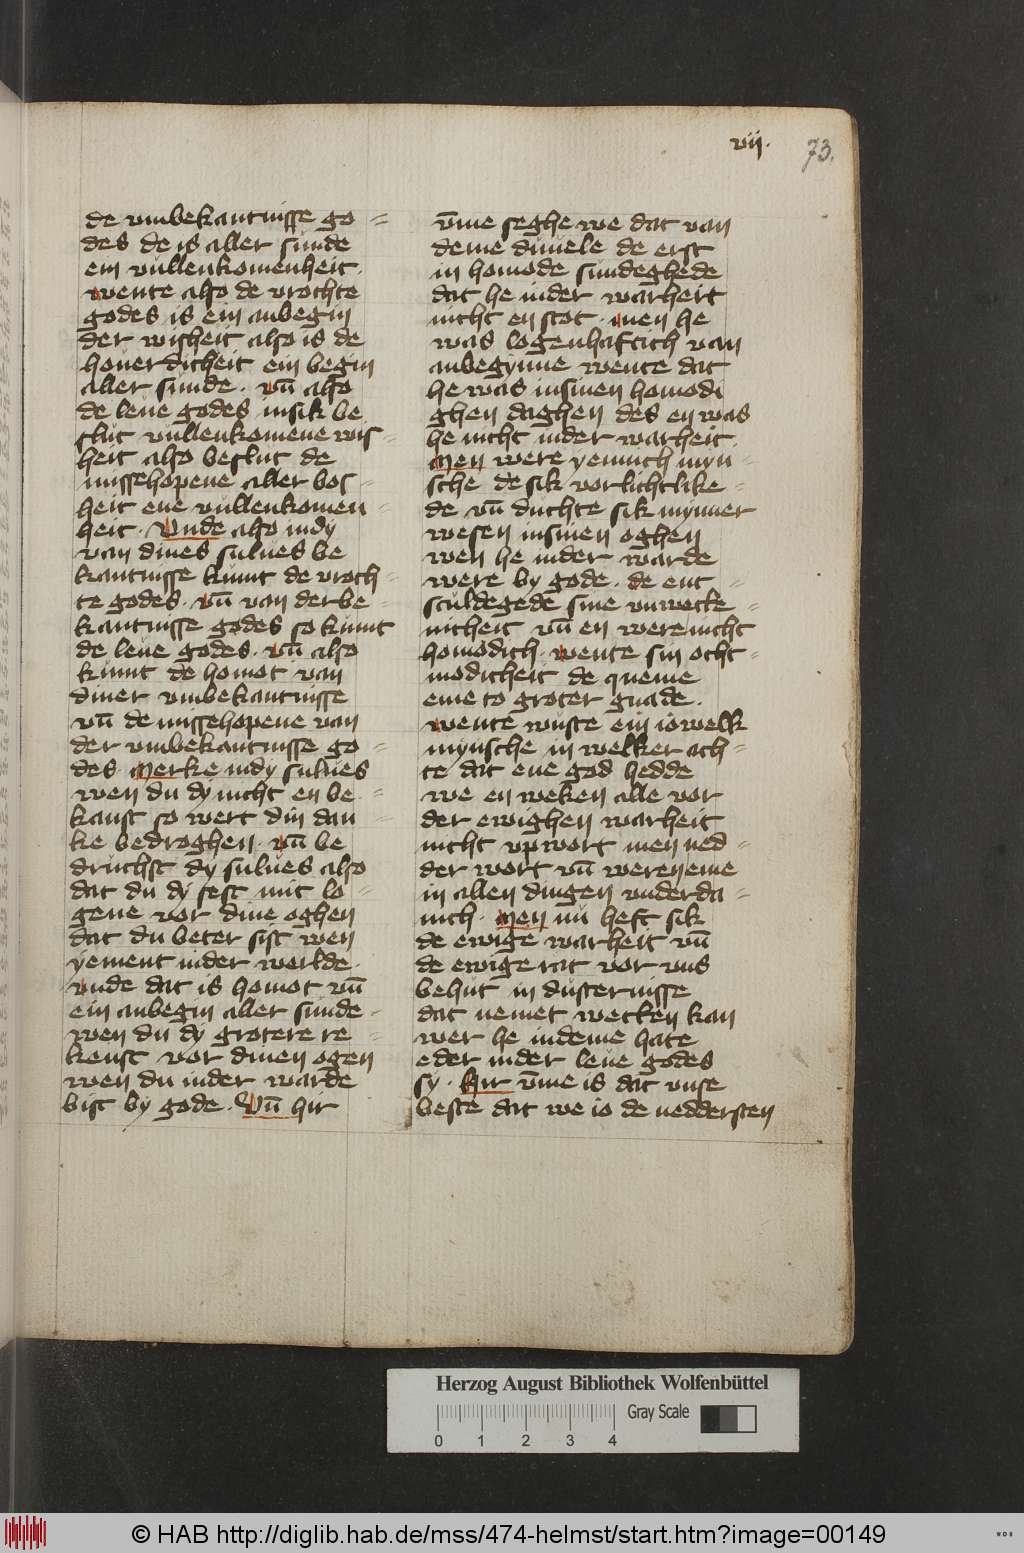 vij.
73.
de vmbekantnisse go=
des de is aller sunde
ein vullenkomenheit.
wente also de vrochte
godes is ein anbegin
der wisheit also is de
houerdicheit ein begin
aller sunde. vn̄ also
de leue godes insik be
slut vullenkomene wis=
heit also beslut de
missehopene aller bos=
heit ene vullenkomen=
heit. Vnde also indy
van dines sulues be
kantnisse kumt de vroch=
te godes. vn̄ van der be=
kantnisse godes so kumt
de leue godes. vn̄ also
kumt de homot van
diner vmbekantnisse
vn̄ de missehopene van
der vmbekantnisse go=
des. Merke indy sulues
wen du dy nicht en be=
kanst so wert din dan=
ke bedroghen. vn̄ be
druchst dy sulues also
dat du dy sest mit lo=
gene vor dine oghen
dat du beter sist wen
yement inder werlde.
vnde dat is homot vn̄
ein anbegin aller sunde=
wen du dy grotere re=
kenst vor dinen ogen
wen du inder warde
bist by gode. Vn̄ hir
v̄me seghe we dat van
deme duuele de erst
in homode sundeghede
dat he inder warheit
nicht en stot. men he
was logenhaftich van
anbegynne wente dat
he was insinen homodi
ghen daghen des en was
he nicht inder warheit.
Men were yennich myn=
sche de sik vorlichtlike=
de vn̄ duchte sik mynner
wesen insinen oghen
wen he inder warde
were by gode. de ent=
sculdegede sine vnwette=
nicheit vn̄ en were nicht
homodich. wente sin ocht=
modicheit de queme
eme to groter gnade.
wente wuste ein iowelk
mynsche in welker ach=
te dat ene god hedde
we en weken alle vor
der ewighen warheit
nicht vpwort men ned=
der wort vn̄ weren eme
in allen dingen vnderda=
nich. Men nu heft sik
de ewige warheit vn̄
de ewige rat vor vns
behut in dusternisse
dat nemet wetten kan
wer he indeme hate
eder inder leue godes
sy. Hir v̄me is dat vnse
beste dat we io de neddersten
Herzog August Bibliothek Wolfenbüttel
Gray Scale
0 1 2 3 4
© HAB http://diglib.hab.de/mss/474-helmst/start.htm?image=00149